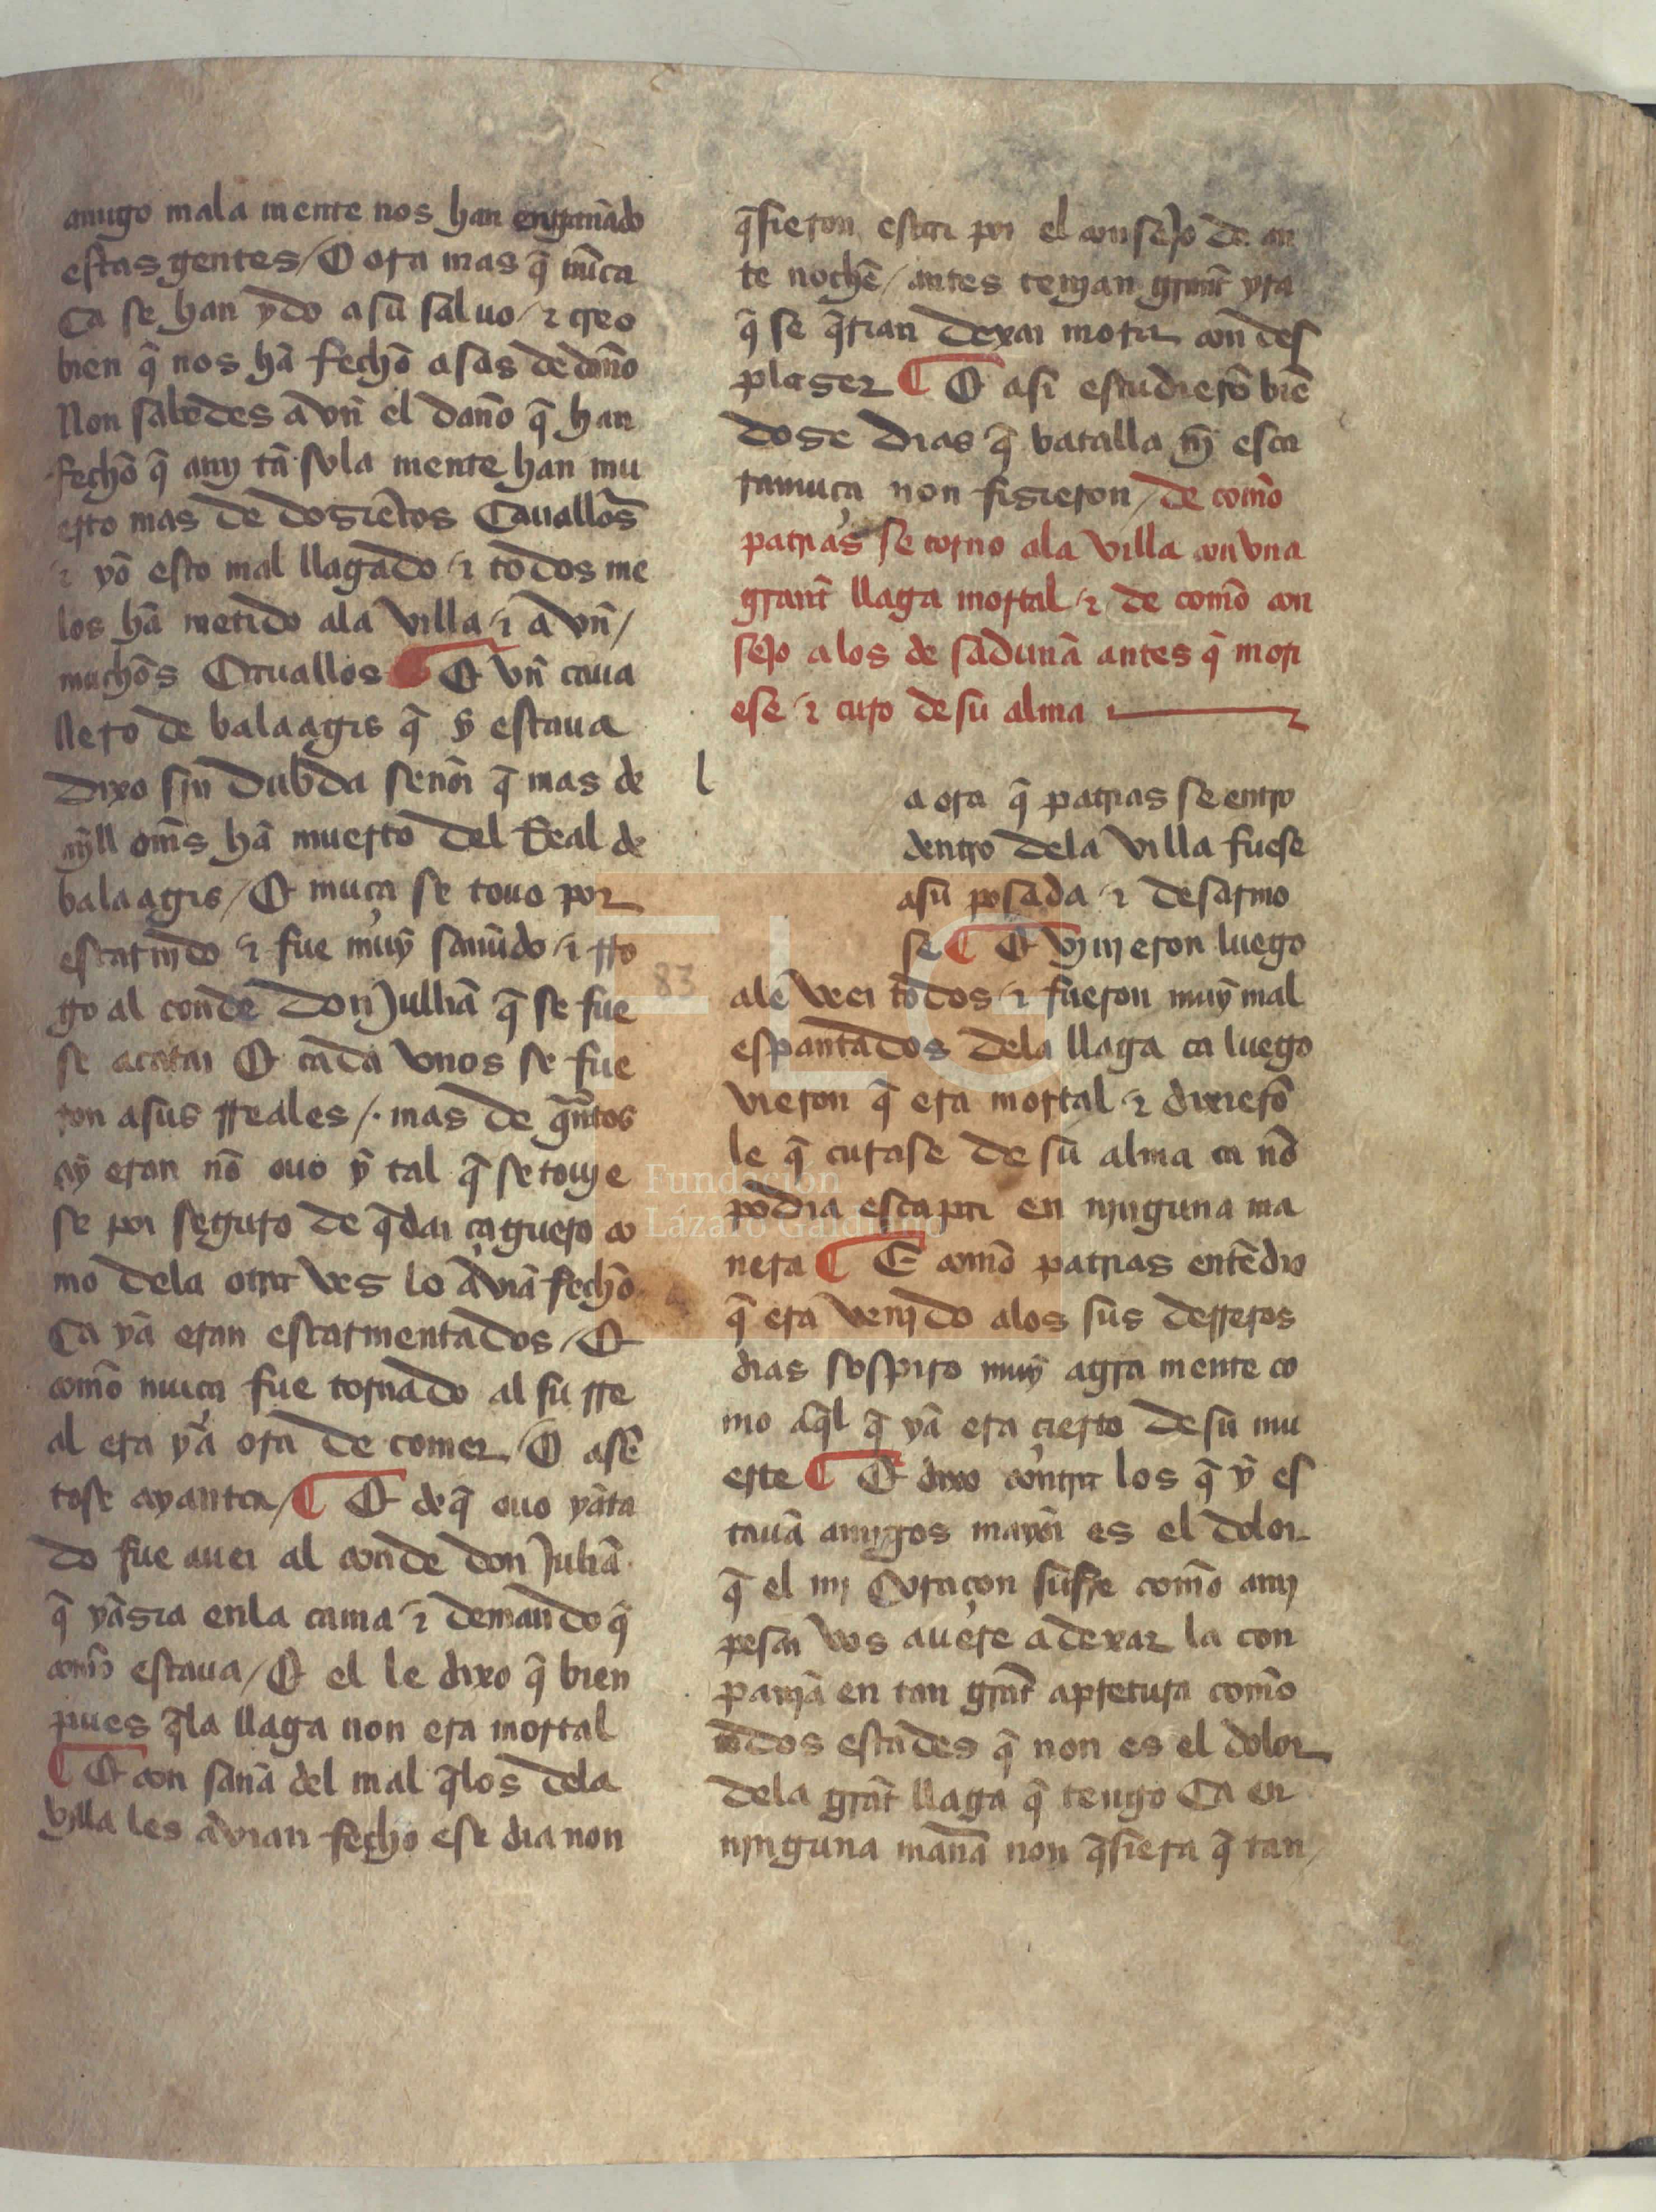 amigo mala mente nos han engañado
estas gentes / E ora mas q̄ nūca
Ca se han ydo a su saluo / ⁊ creo
bien q̄ nos hā fechō asas de dāno
Non sabedes avn̄ el dan̄o q̄ han
fechō q̄ amj tā sola mente han mu
erto mas de dosiētos Cauallōs
⁊ yō esto mal llagado / ⁊ todos me
los hā metido ala villa / ⁊ a vn̄ /
muchōs Cauallos ¶ E vn̄ caua
llero de balaagis q̄ ȳ estaua
dixo sin dubda sen̄or q̄ mas de
mjll om̄s hā muerto del Real de
balaagis / E muça se touo por
escarnjdo ⁊ fue muȳ san̄udo / ⁊ rro
go al conde don Julliā q̄ se fue
se acatar E cada vnos se fue
ron asus rreales / . mas de q̄ntos
aȳ eran nō ouo ȳ tal q̄ se touje
se por seguro de q̄dar çaguero co
mo dela otra ves lo āviā fechō
Ca yā eran escarmentados / E
comō muça fue tornado al su rre
al era yā ora de comer / E asē
tose ayantar / ¶ E deq̄ ouo yāta
do fue auer al conde don Juliā
q̄ yāsia enla cama / ⁊ demando q̄
comō estaua / E el le dixo q̄ bien
pues q̄la llaga non era mortal
¶ E con san̄a del mal q̄los dela
villa les āvian fecho ese dia non
q̄sieron estar por el consejo de an
te nochē / antes tenjan grant̄ yra
q̄ se q̄rian dexar morir con des
plaser ¶ E asi estudierō biē
dose dias q̄ batalla nj̄ esca
ramuça non fisieron / de comō
patrias se torno ala villa con vna
grant̄ llaga mortal / ⁊ de comō con
sejo a los de saduñā antes q̄ mori
ese / ⁊ curo de su alma
l
a ora q̄ patrias se entro
dentro dela villa fuese
asu posada / ⁊ desarmo
se ¶ E vinjeron luego
ale ver todos / ⁊ fueron muȳ mal
espantados dela llaga ca luego
vieron q̄ era mortal / ⁊ dixierō
le q̄ curase de su alma ca nō
podia escapar en njnguna ma
nera ¶ E comō patrias entēdio
q̄ era venjdo alos sus derreros
dias sospiro muȳ agra mente co
mo aq̄l q̄ yā era çierto de su mu
erte ¶ E dixo contra los q̄ ȳ es
tauā amjgos mayōr es el dolor
q̄ el mj Coraçon sufre comō amj
pesar vos auere a dexar la con
panjā en tan grāt apretura comō
todos estades q̄ non es el dolor
dela grāt llaga q̄ tengo Ca en
njnguna mān̄a non q̄siera q̄ tan
83
FLG
Fundación
Lázaro Galdiano